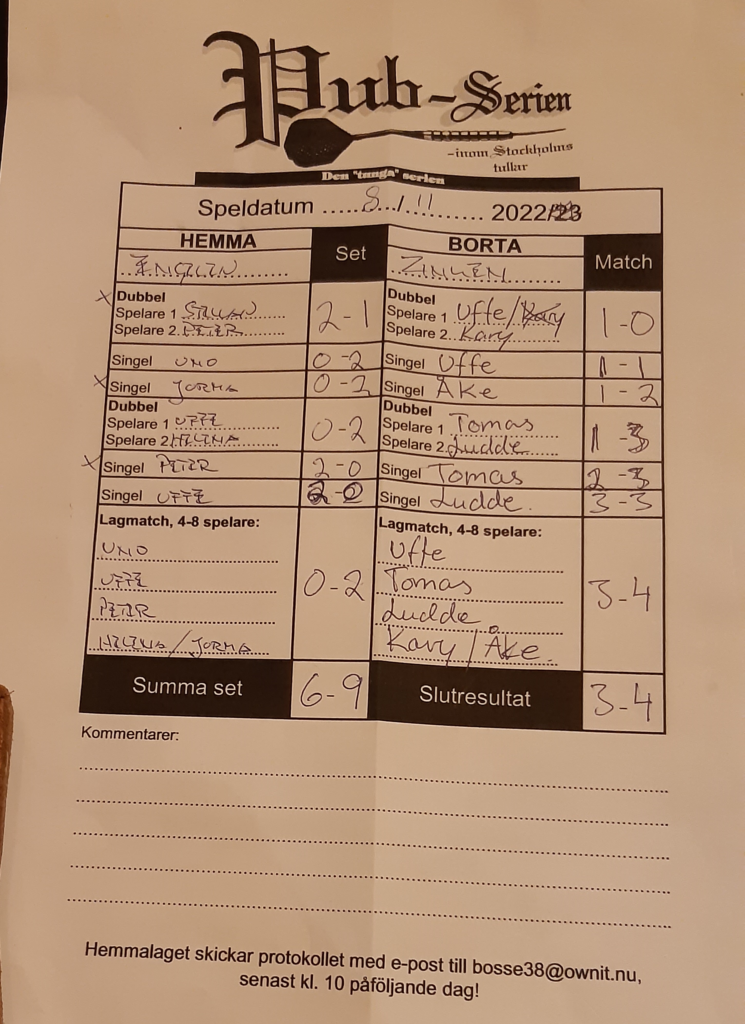 Pub-Serien
-inom Stockholms
tullar
Den "tunga" serien
Speldatum .....8../.11....... 2022/23
HEMMA Set BORTA Match
ZINKEN
x Dubbel 2-1 Dubbel 1-0
Spelare 1 Spelare 1 Uffe/Kary
Spelare 2 PETER Spelare 2 Kary
Singel UNO 0-2 Singel Uffe 1-1
x Singel JORMA 0-2 Singel Åke 1-2
Dubbel 0-2 Dubbel 1-3
Spelare 1 UFFE Spelare 1 Tomas
Spelare 2 HELENA Spelare 2 Ludde
x Singel PETER 2-0 Singel Tomas 2-3
Singel UFFE 2-0 Singel Ludde. 3-3
Lagmatch, 4-8 spelare: 0-2 Lagmatch, 4-8 spelare: 3-4
UNO Uffe
UFFE Tomas
PETER Ludde
HELENA/JORMA Kary/Åke.
Summa set 6-9 Slutresultat 3-4
Kommentarer:
Hemmalaget skickar protokollet med e-post till bosse38@ownit.nu,
senast kl. 10 påföljande dag!